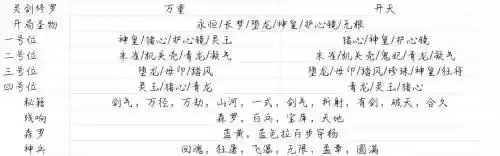 灵剑修罗 万重 开天
开局圣物 永恒/长梦/堕龙/神皇/护心镜/无根
一号位 神皇/猪心/护心镜/灵玉 猪心/神皇/护心镜
二号位 朱雀/机关壳/青龙/凝气 朱雀/机关壳/鬼妃/青龙/凝气
三号位 堕龙/母印/踏风 堕龙/母印/踏风/珍珠/神皇/狂将
四号位 灵玉/猪心/青龙 青龙/灵玉/猪心
秘籍 剑气，万径，万劫，山河，一式，剑气，折射，有剑，破天，合久
残响 森罗，百兵，宝库，天地
森罗 蓝黄，蓝色拉百步穿杨
神兵 回魂，狂屠，飞瀑，无限，盖章，圆满